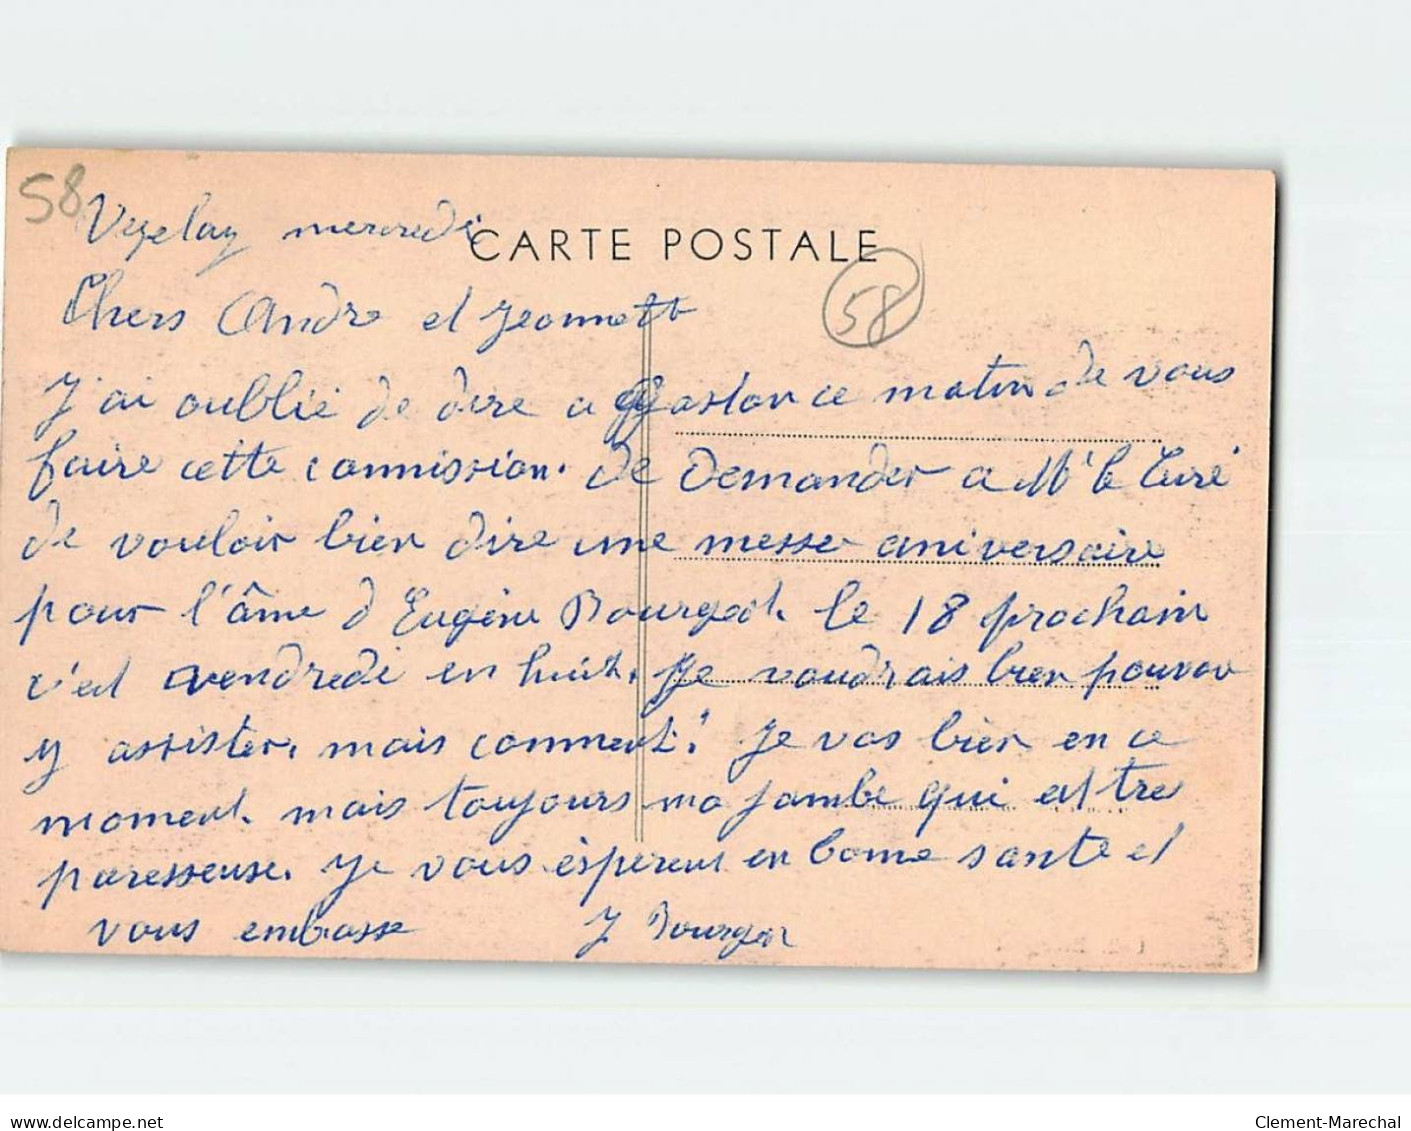 58
Vezelay mercredi
CARTE POSTALE
58
Chers Andre et Jeannette
J'ai oublié de dire a Gaston ce matin de vous
faire cette commission. de Demander a Mr le Curé
de vouloir bien dire une messe aniversaire
pour l'âme d Eugène Bourgeot. le 18 prochain
c'est vendredi en huit. Je voudrais bien pouvoir
y assister, mais comment! Je vas bien en ce
moment. mais toujours ma jambe qui est tres
paresseuse. Je vous èsperent en bonne sante et
vous embrasse J Bourgeot
delcampe.net
Clement-Marechal